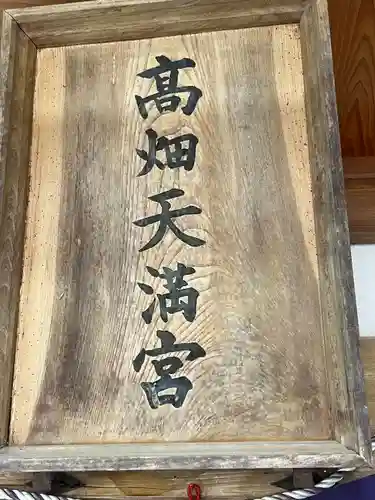 高畑天満宮